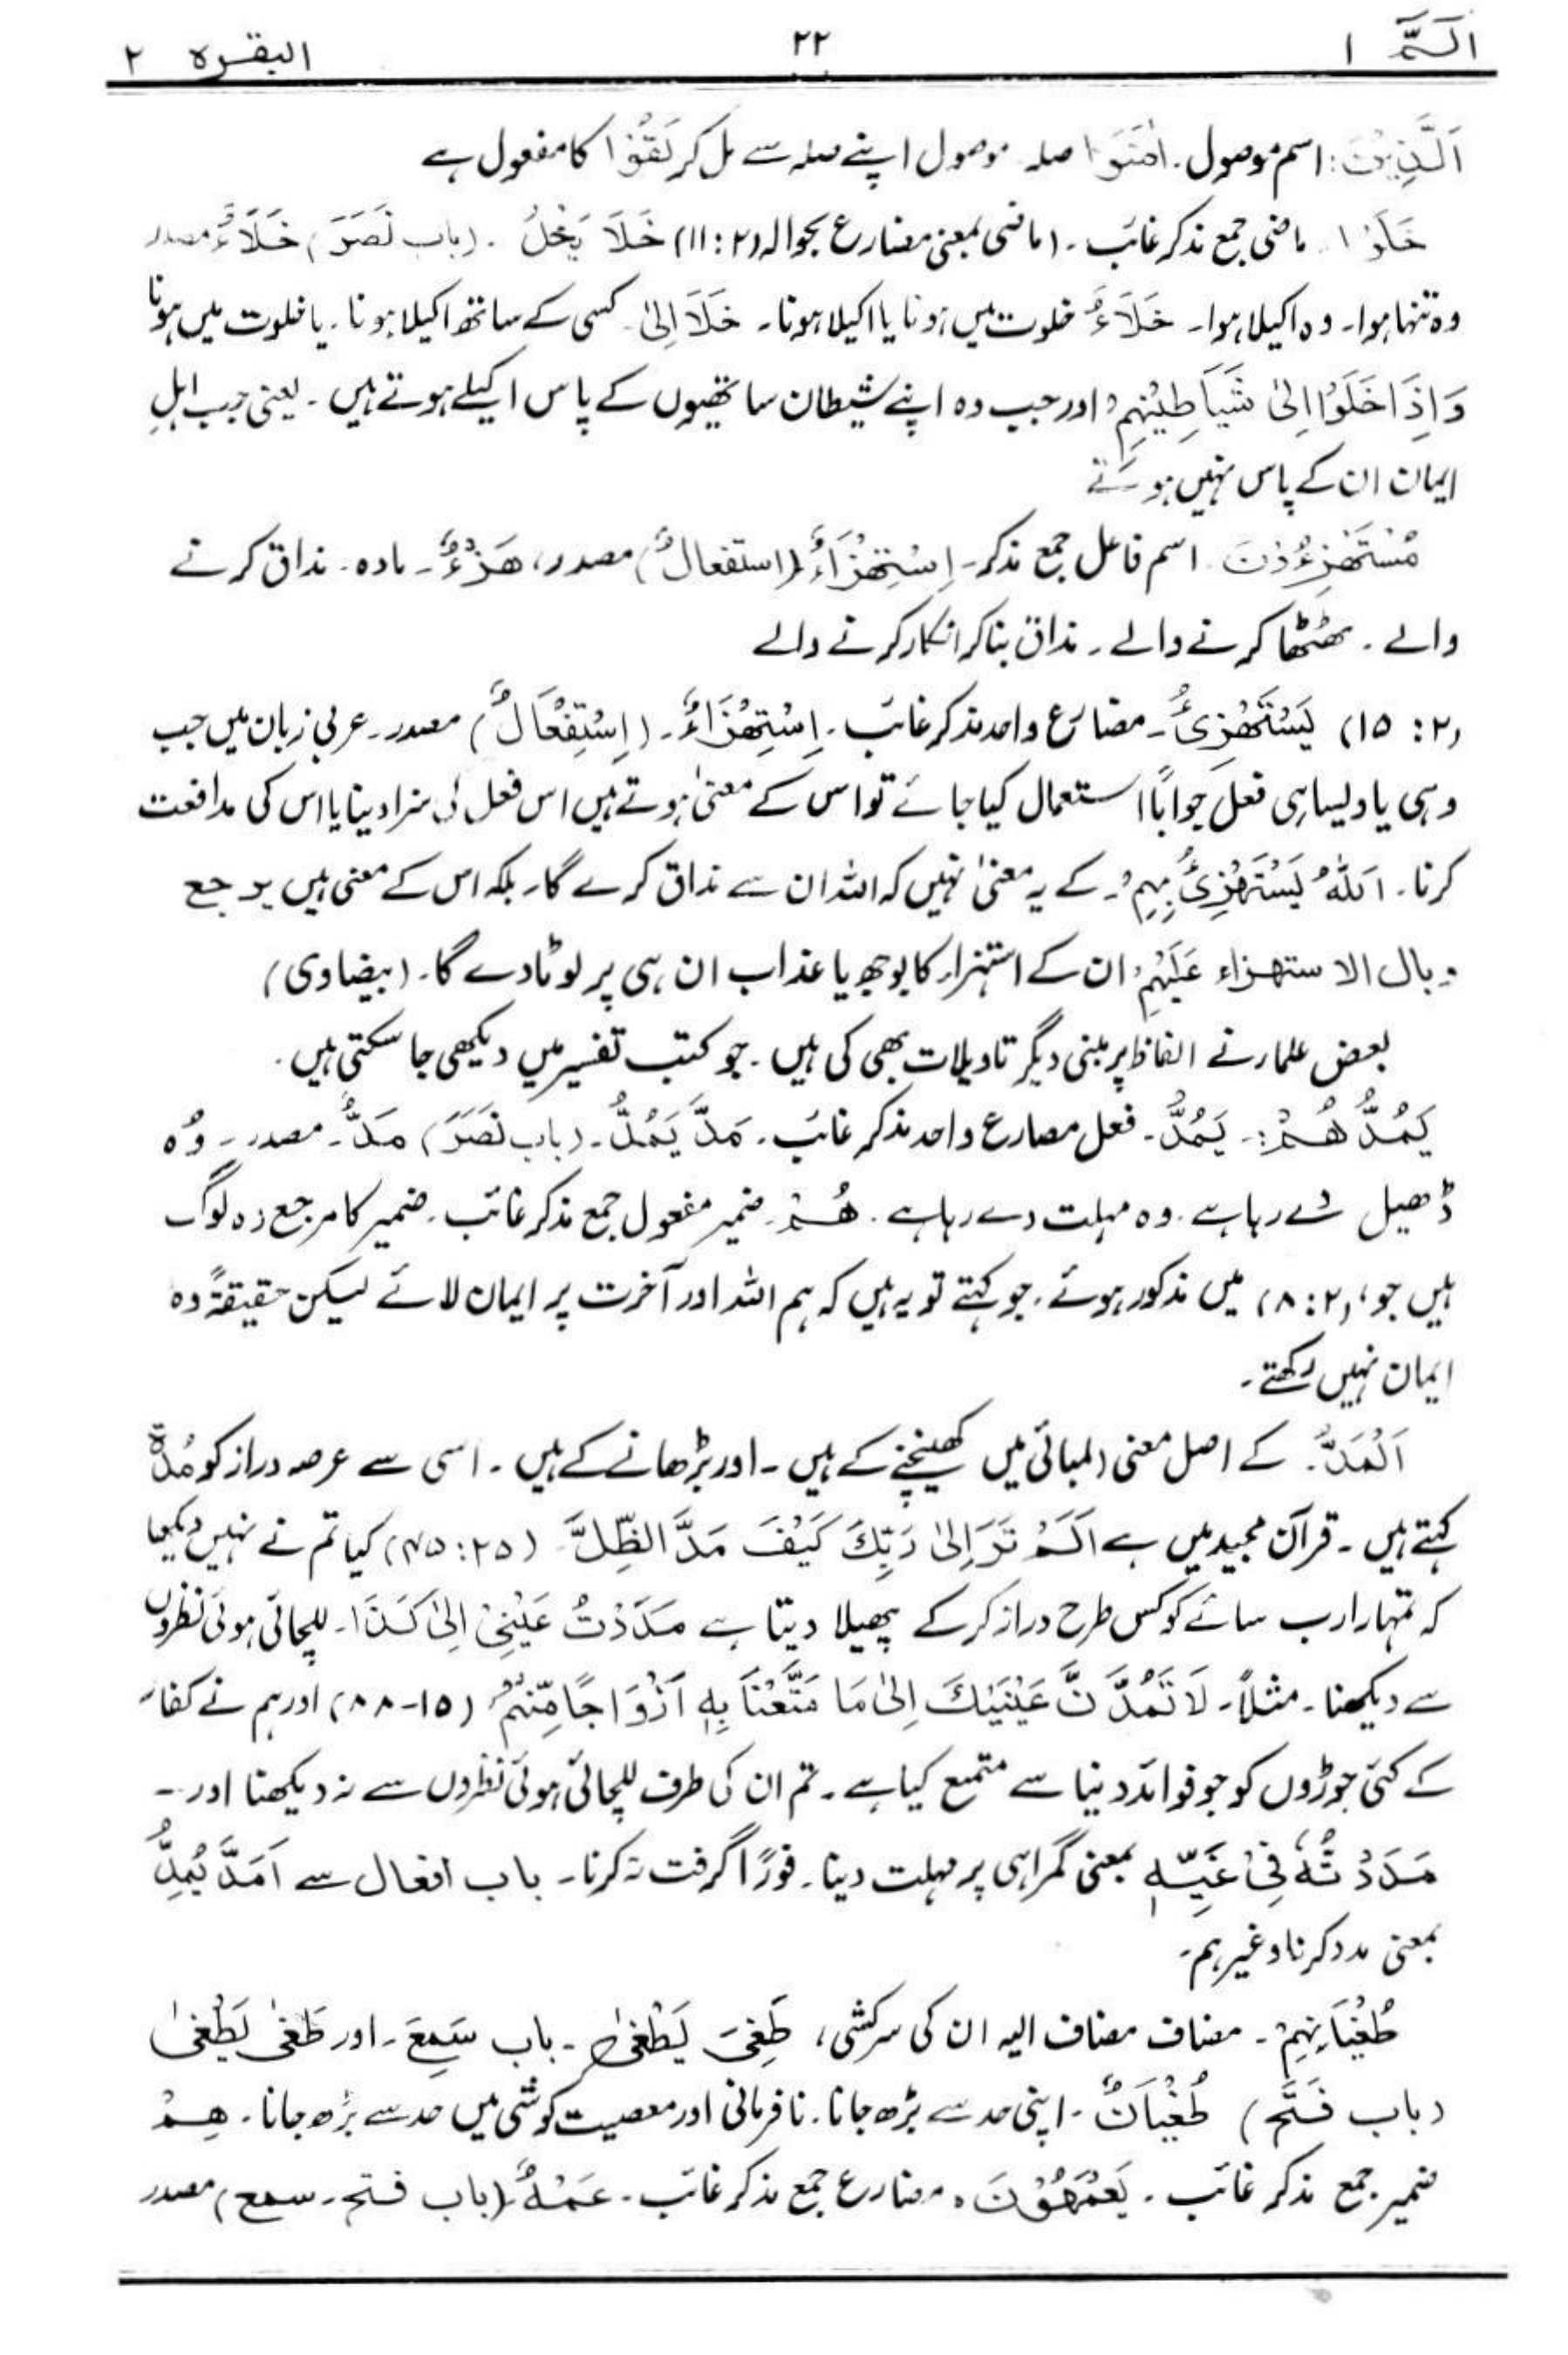 الٓمّٓ ۱ ۲۲ البقرہ ۲
اَلَّذِیْنَ: اسم موصول۔ اٰمَنُوْا صلہ موصول اپنے صلہ سے مل کر لَقُوْا کا مفعول ہے
خَلَوْا۔ ماضی جمع مذکر غائب۔ (ماضی بمعنی مضارع بحوالہ (۲: ۱۱) خَلَا یَخْلُ۔ (باب نَصَرَ) خَلَاءٌ مصدر
وہ تنہا ہوا۔ وہ اکیلا ہوا۔ خَلَاءٌ خلوت میں ہونا یا اکیلا ہونا۔ خَلَا اِلیٰ۔ کسی کے ساتھ اکیلا ہونا۔ یا خلوت میں ہونا
وَاِذَا خَلَوْا اِلیٰ شَیَاطِیْنِہِمْ اور جب وہ اپنے شیطان ساتھیوں کے پاس اکیلے ہوتے ہیں۔ یعنی جب اہلِ
ایمان ان کے پاس نہیں ہوتے
مُسْتَھْزِءُوْنَ۔ اسم فاعل جمع مذکر۔ اِسْتِھْزَاءٌ (استفعالٌ) مصدر، ھَزْءٌ۔ مادہ۔ مذاق کرنے
والے۔ ٹھٹھا کرنے والے۔ مذاق بنا کر انکار کرنے والے
(۲: ۱۵) یَسْتَھْزِیُٔ۔ مضارع واحد مذکر غائب۔ اِسْتِھْزَاءٌ۔ (اِسْتِفْعَالٌ) مصدر۔ عربی زبان میں جب
وہی یا ویسا ہی فعل جواباً استعمال کیا جائے تو اس کے معنیٰ ہوتے ہیں اس فعل کی سزا دینا یا اس کی مدافعت
کرنا۔ اَللہُ یَسْتَھْزِیُٔ بِہِمْ۔ کے یہ معنیٰ نہیں کہ اللہ ان سے مذاق کرے گا۔ بلکہ اس کے معنی ہیں یرجع
وبال الاستھزاء عَلَیْہِمْ ان کے استہزار کا بوجھ یا عذاب ان ہی پر لوٹا دے گا۔ (بیضاوی)
بعض علمار نے الفاظ پر مبنی دیگر تاویلات بھی کی ہیں۔ جو کتب تفسیر میں دیکھی جا سکتی ہیں۔
یَمُدُّھُمْ:۔ یَمُدُّ۔ فعل مضارع واحد مذکر غائب۔ مَدَّ یَمُدُّ۔ (باب نَصَرَ) مَدٌّ۔ مصدر۔ وُہ
ڈھیل دے رہا ہے۔ وہ مہلت دے رہا ہے۔ ھُمْ۔ ضمیر مفعول جمع مذکر غائب۔ ضمیر کا مرجع وہ لوگ
ہیں جو، (۲: ۸) میں مذکور ہوئے۔ جو کہتے تو یہ ہیں کہ ہم اللہ اور آخرت پر ایمان لائے لیکن حقیقۃً وہ
ایمان نہیں رکھتے۔
اَلْمَدُّ۔ کے اصل معنی (لمبائی میں کھینچنے کے ہیں۔ اور بڑھانے کے ہیں۔ اسی سے عرصہ دراز کو مُدّۃٌ
کہتے ہیں۔ قرآن مجید میں ہے اَلَمْ تَرَ اِلیٰ رَبِّکَ کَیْفَ مَدَّ الظِّلَّ۔ (۲۵: ۴۵) کیا تم نے نہیں دیکھا
کہ تمہارا رب سائے کو کس طرح دراز کر کے پھیلا دیتا ہے مَدَدْتُ عَیْنِیْ اِلیٰ کَذَا۔ للچائی ہوئی نظروں
سے دیکھنا۔ مثلاً۔ لَا تَمُدَّنَّ عَیْنَیْکَ اِلیٰ مَا مَتَّعْنَا بِہٖ اَزْوَاجًا مِّنْہُمْ (۱۵-۸۸) اور ہم نے کفار
کے کئی جوڑوں کو جو فوائد دنیا سے متمتع کیا ہے۔ تم ان کی طرف للچائی ہوئی نظروں سے نہ دیکھنا اور۔۔
مَدَدْتُّہٗ فِیْ غَیِّہٖ بمعنی گمراہی پر مہلت دینا۔ فورًا گرفت نہ کرنا۔ باب افعال سے اَمَدَّ یُمِدُّ
بمعنی مدد کرنا وغیرہم۔
طُغْیَانِہِمْ۔ مضاف مضاف الیہ ان کی سرکشی، طَغِیَ یَطْغیٰ۔ باب سَمِعَ۔ اور طَغیٰ یَطْغیٰ
(باب فَتَحَ) طُغْیَانٌ۔ اپنی حد سے بڑھ جانا۔ نافرمانی اور معصیت کوشی میں حد سے بڑھ جانا۔ ھِمْ
ضمیر جمع مذکر غائب۔ یَعْمَھُوْنَ۔ مضارع جمع مذکر غائب۔ عَمْہٌ (باب فتح۔ سمع) مصدر